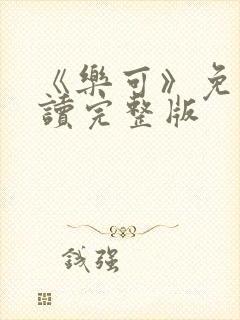 《樂可》免
讀完整版
錢强